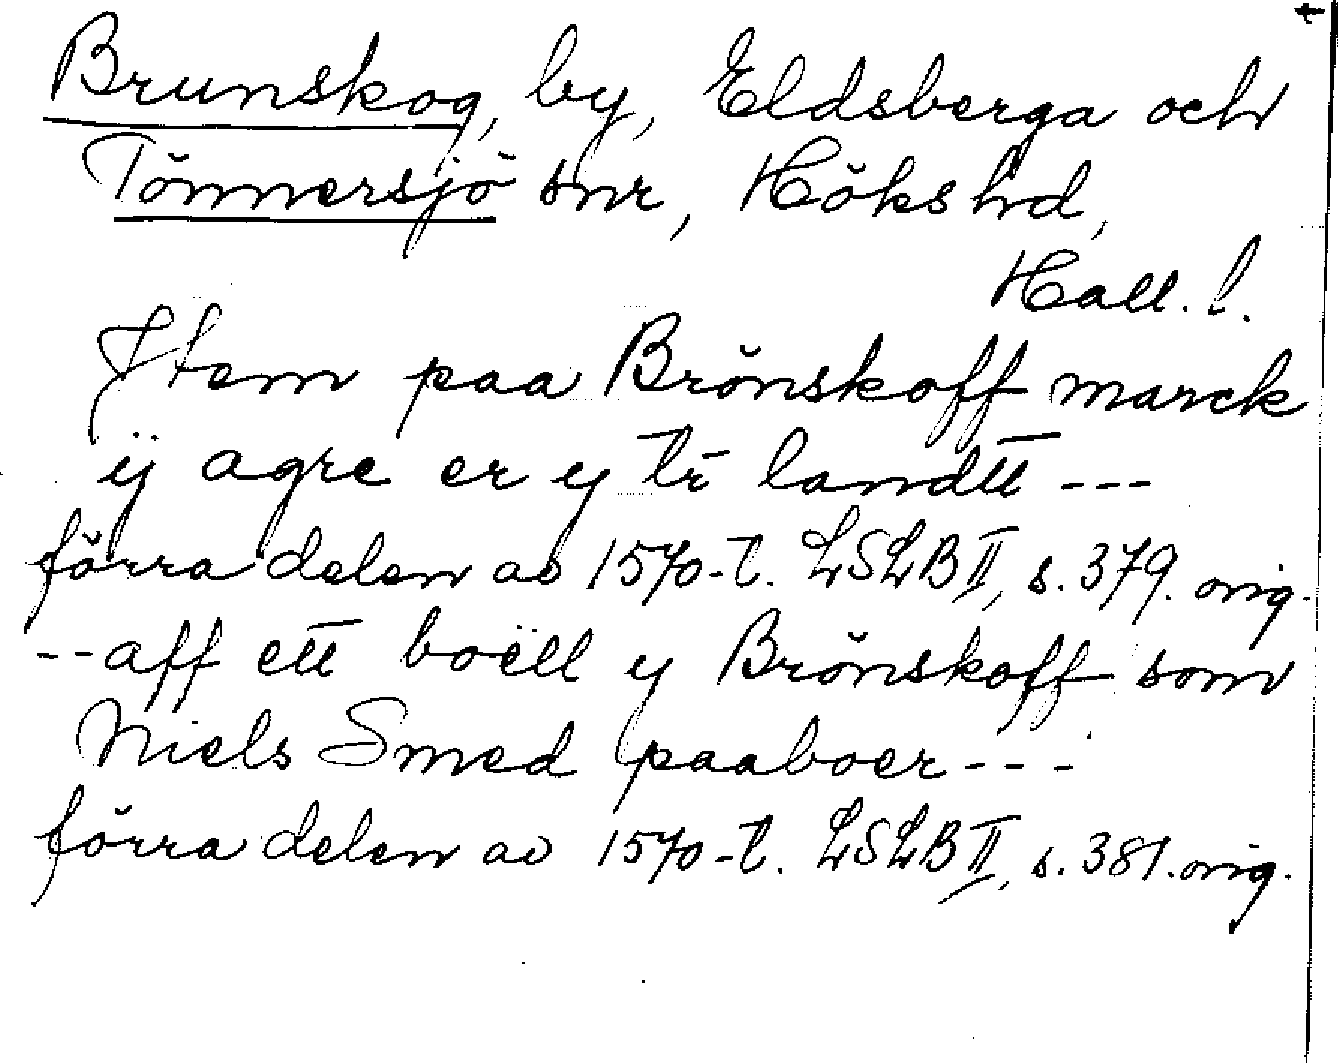 Brunskog, by, Eldsberga och
Tönnersjö snr, Höks hd,
Hall. l.
Item paa Brönskoff marck
ij agre er y tr landtt ---
förra delen av 1570-t. LSLB II, s. 379. orig.
--aff ett boëll y Brönskoff som
Niels Smed paaboer---
förra delen av 1570-t. LSLB II, s. 381. orig.